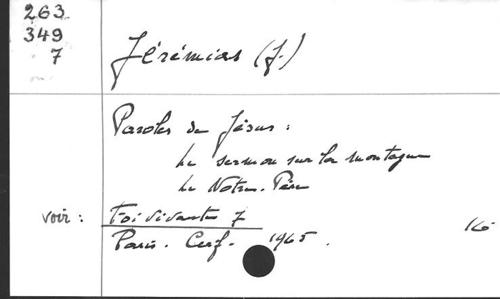 263
349
7
Jérémias (J.)
Paroles de Jésus :
Le sermon sur la montagne
Le Notre-Père
voir : Foi vivante 7
Paris. Cerf. 1965. 16